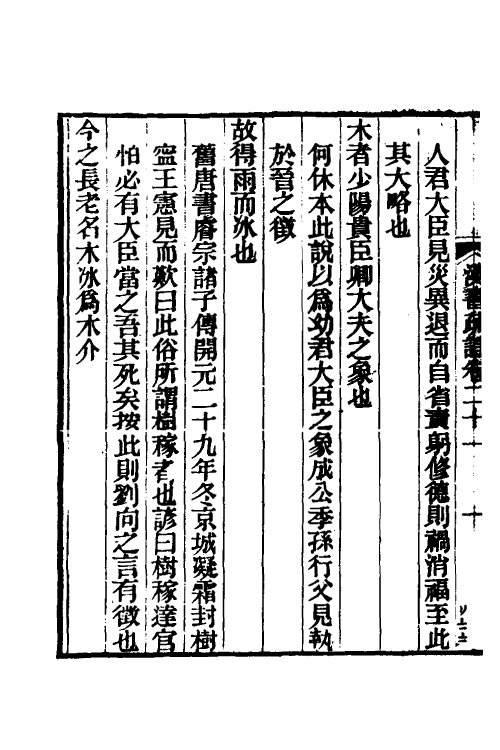 人君大臣見災異退而自省責躬修德則禍消福至此
其大略也
木者少陽貴臣卿大夫之象也
何休本此說以為幼君大臣之象成公季孫行父見執
於晉之徵
故得雨而冰也
舊唐書睿宗諸子傳開元二十九年冬京城凝霜封樹
寧王憲見而歎曰此俗所謂樹稼者也諺曰樹稼達官
怕必有大臣當之吾其死矣按此則劉向之言有徵也
今之長老名木冰爲木介
漢書疏證卷二十